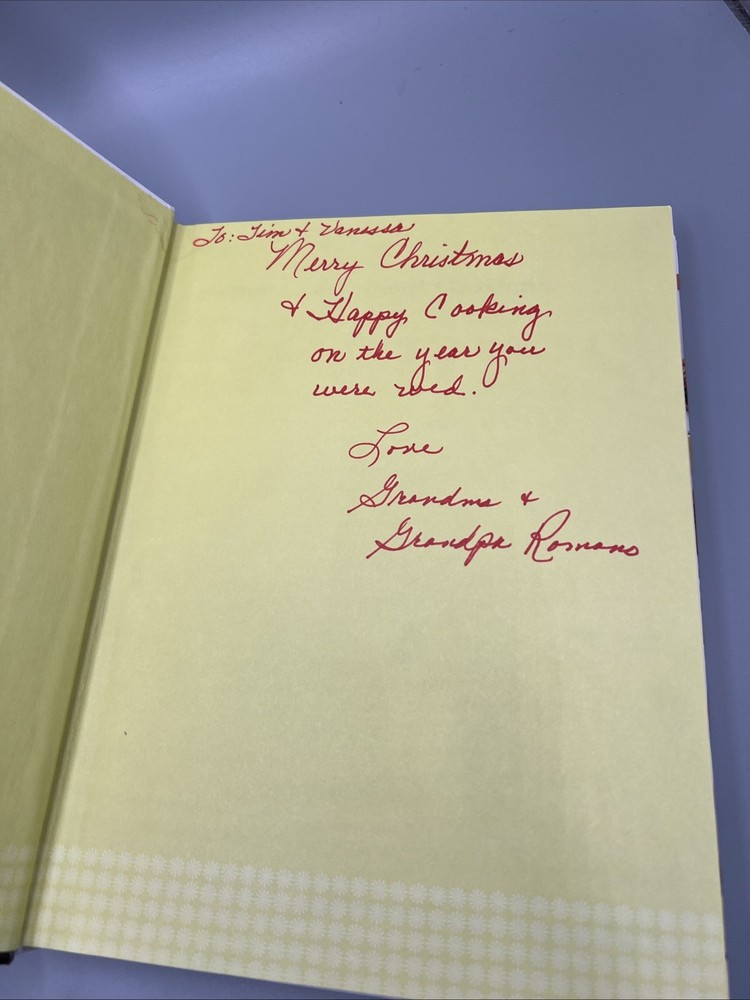 To: Tim & Vanessa
Merry Christmas
& Happy Cooking
on the year you
were wed.
Love
Grandma &
Grandpa Romano